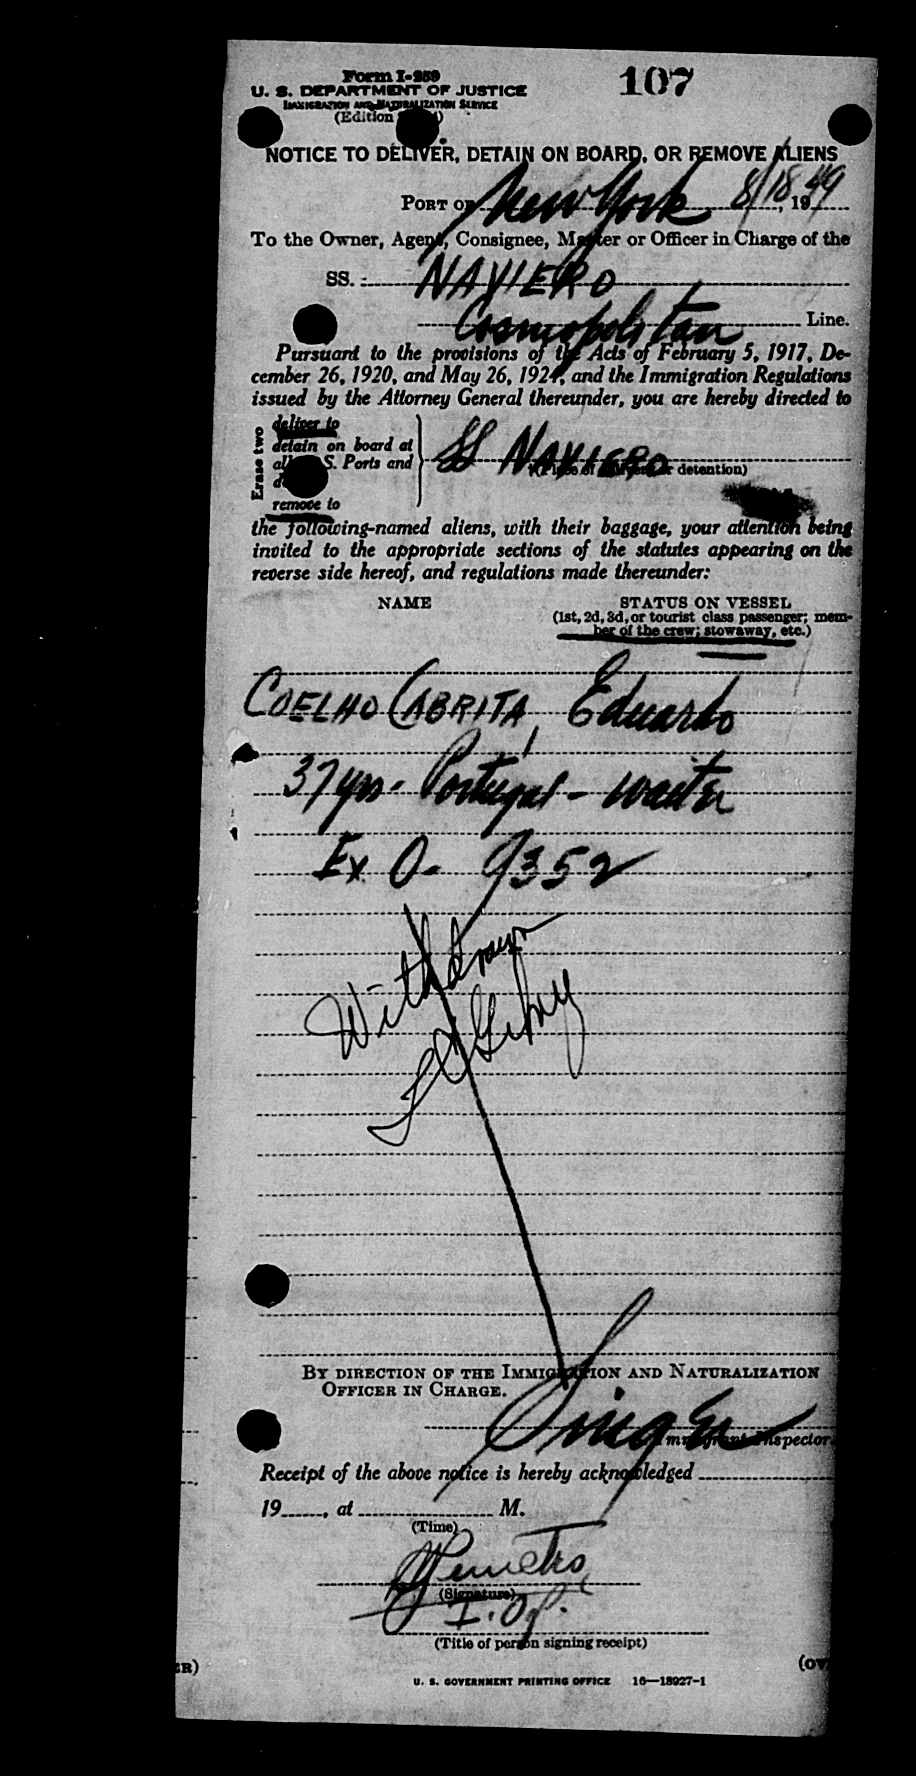 Form I-259
107
U. S. DEPARTMENT OF JUSTICE
IMMIGRATION AND NATURALIZATION SERVICE
(Edition
NOTICE TO DELIVER, DETAIN ON BOARD, OR REMOVE ALIENS
PORT OF New York 8/18, 1949
To the Owner, Agent, Consignee, Master or Officer in Charge of the
SS. NAVIERO
Cosmopolitan Line.
Pursuant to the provisions of the Acts of February 5, 1917, De-
cember 26, 1920, and May 26, 1924, and the Immigration Regulations
issued by the Attorney General thereunder, you are hereby directed to
Erase two
deliver to
detain on board at
S. Ports and
remove to
SS NAVIERO
(Place of detention)
the following-named aliens, with their baggage, your attention being
invited to the appropriate sections of the statutes appearing on the
reverse side hereof, and regulations made thereunder:
NAME STATUS ON VESSEL
(1st, 2d, 3d, or tourist class passenger; mem-
ber of the crew; stowaway, etc.)
COELHO CABRITA, Eduardo
37 yrs - Portugal - waiter
Ex O - 9352
Withdrawn
BY DIRECTION OF THE IMMIGRATION AND NATURALIZATION
OFFICER IN CHARGE.
Singer
Immigrant Inspector.
Receipt of the above notice is hereby acknowledged
19, at M.
(Time)
(Signature)
(Title of person signing receipt)
U. S. GOVERNMENT PRINTING OFFICE 16—18927-1